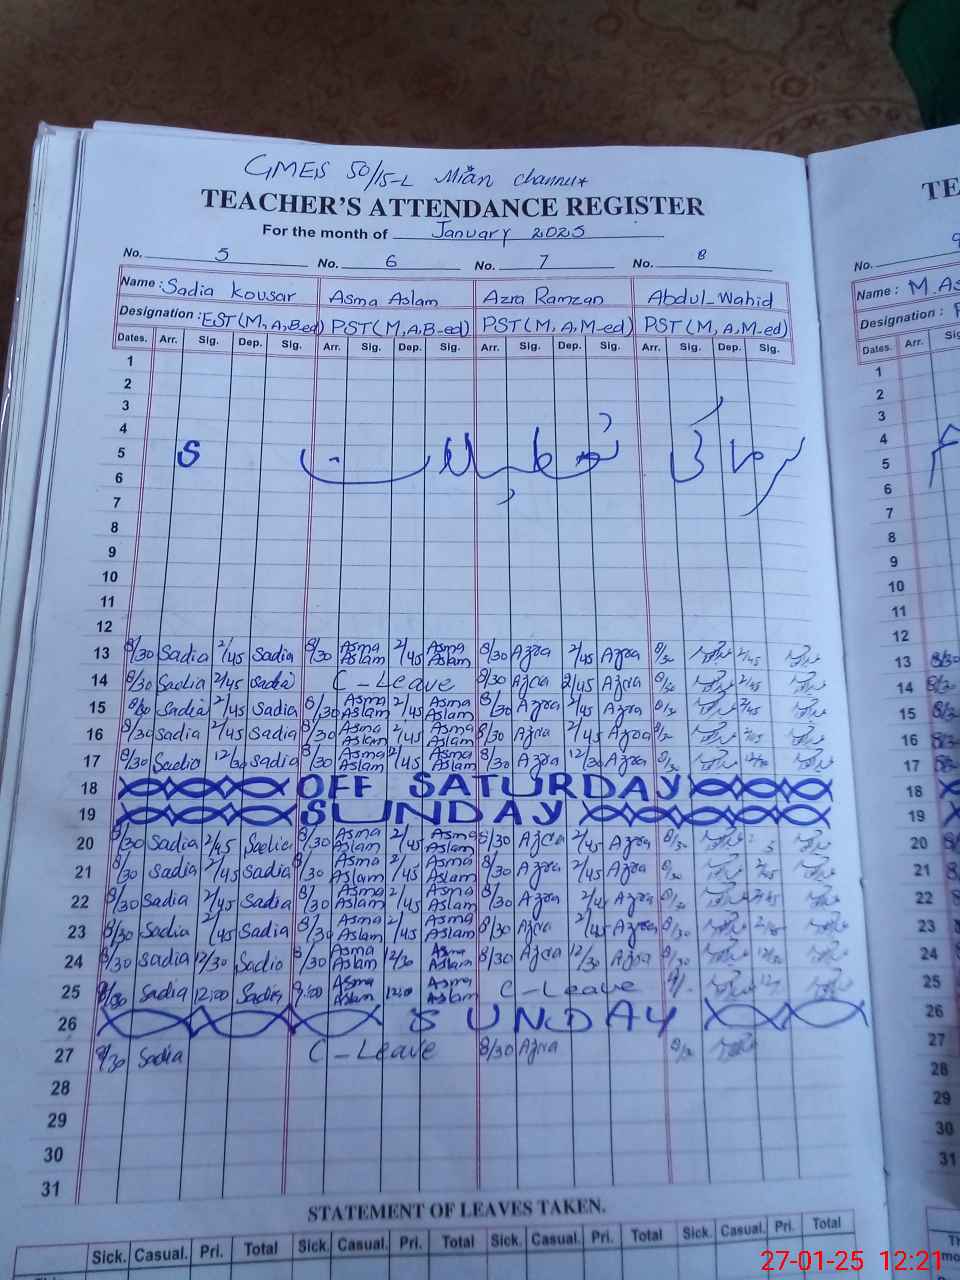 GMES 50/15-L Mian Channu
TEACHER'S ATTENDANCE REGISTER
For the month of January 2025
No. 5 No. 6 No. 7 No. 8
Name: Sadia Kousar Asma Aslam Azra Ramzan Abdul-Wahid
Designation: EST(M,A,B.ed) PST(M,A,B-ed) PST(M,A,M-ed) PST(M,A,M-ed)
Dates. Arr. Sig. Dep. Sig. Arr. Sig. Dep. Sig. Arr. Sig. Dep. Sig. Arr. Sig. Dep. Sig.
1
2
3
4
5 موسم سرما کی تعطیلات
6
7
8
9
10
11
12
13 8/30 Sadia 2/45 Sadia 8/30 Asma Aslam 2/45 Asma Aslam 8/30 Azra 2/45 Azra 8/30 2/45
14 8/30 Sadia 2/45 Sadia C-Leave 8/30 Azra 2/45 Azra 8/30 2/45
15 8/30 Sadia 2/45 Sadia 8/30 Asma Aslam 2/45 Asma Aslam 8/30 Azra 2/45 Azra 8/30 2/45
16 8/30 Sadia 2/45 Sadia 8/30 Asma Aslam 2/45 Asma Aslam 8/30 Azra 2/45 Azra 8/30 2/45
17 8/30 Sadia 12/30 Sadia 8/30 Asma Aslam 2/45 Asma Aslam 8/30 Azra 12/30 Azra 8/30 12/30
18 OFF SATURDAY
19 SUNDAY
20 8/30 Sadia 2/45 Sadia 8/30 Asma Aslam 2/45 Asma Aslam 8/30 Azra 2/45 Azra 8/30
21 8/30 Sadia 2/45 Sadia 8/30 Asma Aslam 2/45 Asma Aslam 8/30 Azra 2/45 Azra 8/30 2/45
22 8/30 Sadia 2/45 Sadia 8/30 Asma Aslam 2/45 Asma Aslam 8/30 Azra 2/45 Azra 8/30 2/45
23 8/30 Sadia 2/45 Sadia 8/30 Asma Aslam 2/45 Asma Aslam 8/30 Azra 2/45 Azra 8/30 2/45
24 8/30 Sadia 12/30 Sadia 8/30 Asma Aslam 12/30 Asma Aslam 8/30 Azra 12/30 Azra 8/30 12/30
25 Sadia 12:00 Sadia 9:00 Asma Aslam 12:00 Asma Aslam C-Leave
26 SUNDAY
27 8/30 Sadia C-Leave 8/30 Azra 8/30
28
29
30
31
STATEMENT OF LEAVES TAKEN.
Sick. Casual. Pri. Total Sick. Casual. Pri. Total Sick. Casual. Pri. Total Sick. Casual. Pri. Total
No.
Name: M.
Designation:
Dates. Arr.
1
2
3
4
5
6
7
8
9
10
11
12
13 8/30
14 8/30
15 8/30
16 8/30
17
18
19
20
21
22
23
24
25
26
27
28
29
30
31
27-01-25 12:21